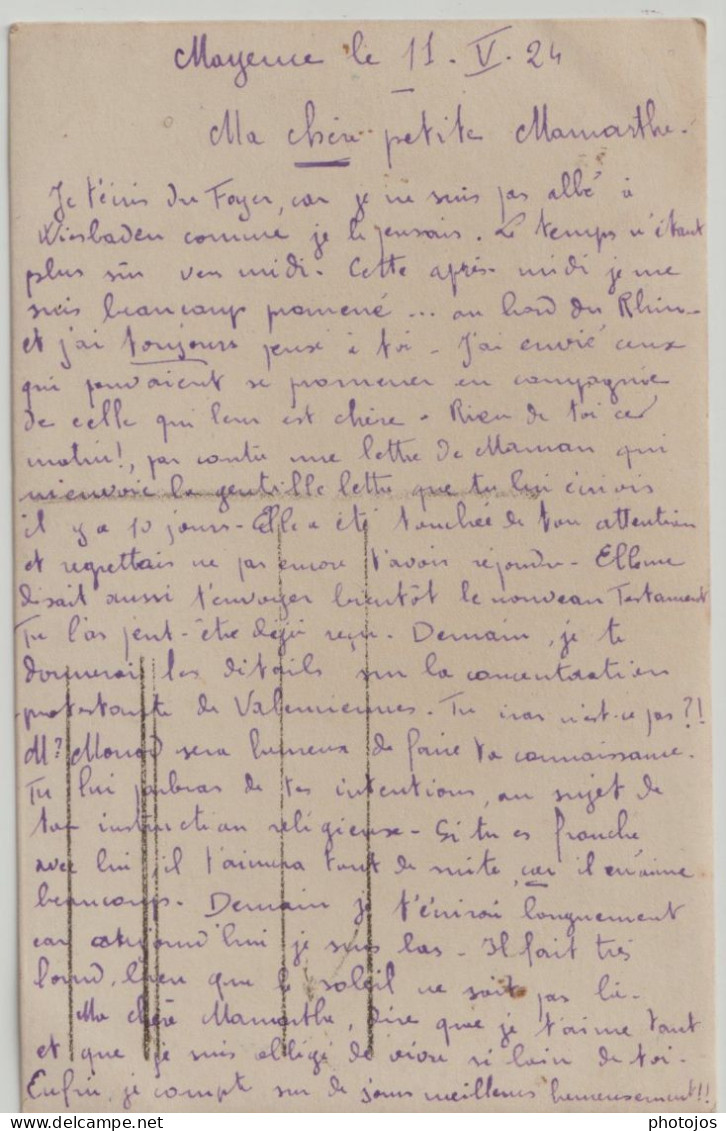 Mayence le 11. V. 24
Ma chère petite Mamarthe.
Je t'écris du Foyer, car je ne suis pas allé à
Wiesbaden comme je le pensais. Le temps n'étant
plus sûr vers midi. Cette après-midi je me
suis beaucoup promené ... au bord du Rhin -
et j'ai toujours pensé à toi - J'ai envié ceux
qui pouvaient se promener en compagnie
de celle qui leur est chère - Rien de toi ce
matin!, par contre une lettre de Maman qui
m'envoie la gentille lettre que tu lui écrivis
il y a 10 jours - Elle a été touchée de ton attention
et regrettais ne pas encore t'avoir répondu - Elle me
disait aussi t'envoyer bientôt le nouveau Testament
Tu l'as peut-être déjà reçu. Demain, je te
donnerai les détails sur la concentration
protestante de Valenciennes. Tu iras n'est-ce pas?!
Mr Monod sera heureux de faire ta connaissance.
Tu lui parleras de tes intentions, au sujet de
ton instruction religieuse - Si tu es franche
avec lui, il t'aimera tout de suite, car il en aime
beaucoup. Demain je t'écrirai longuement
car aujourd'hui je suis las - Il fait très
lourd, bien que le soleil ne soit pas là.
Ma chère Mamarthe, dire que je t'aime tant
et que je suis obligé de vivre si loin de toi.
Enfin, je compte sur de jours meilleurs heureusement!!
photojos